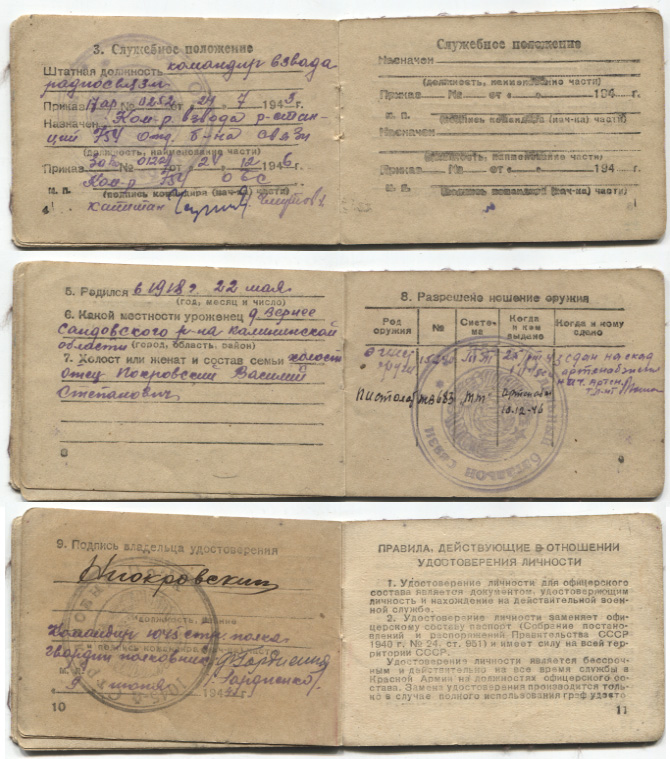 3. Служебное положение
Штатная должность командир взвода
радиосвязи
Приказ № 0252 от 24 7 194
Назначен Ком-р взвода р-стан-
ций 754 отд. б-на связи
(должность, наименование части)
Приказ № от 24 12 1946
Ком-р 754 ОБС
М. П. (подпись командира (нач-ка) части)
капитан
4
Служебное положение
Назначен
(должность, наименование части)
Приказ № от 194 г.
М. П. (подпись командира (нач-ка) части)
Назначен
(должность, наименование части)
Приказ № от 194 г.
М. П. (подпись командира (нач-ка) части)
5. Родился в 1918 г. 22 мая
(год, месяц и число)
6. Какой местности уроженец д
Сандовского р-на Калининской
области (город, область, район)
7. Холост или женат и состав семьи холост
отец Покровский Василий
Степанович
8
8. Разрешено ношение оружия
Род оружия № Систе-ма Когда и кем выдано Когда и кому сдано
ТТ сдан на склад
Пистолет ТТ
10.12.46
отдельный батальон связи
9
9. Подпись владельца удостоверения
Покровский
Должность, звание
Командир стр полка
гвардии полковник Гордиенко
подпись командира части
июня 194
10
ПРАВИЛА, ДЕЙСТВУЮЩИЕ В ОТНОШЕНИИ
УДОСТОВЕРЕНИЯ ЛИЧНОСТИ
1. Удостоверение личности для офицерского
состава является документом, удостоверяющим
личность и нахождение на действительной воен-
ной службе.
2. Удостоверение личности заменяет офи-
церскому составу паспорт (Собрание постано-
влений и распоряжений Правительства СССР
1940 г. № 24, ст. 951) и имеет силу на всей тер-
ритории СССР.
Удостоверение личности является бессроч-
ным и действительно на все время службы в
Красной Армии на должностях офицерского со-
става. Замена удостоверения производится толь-
ко в случае полного использования граф удосто-
11